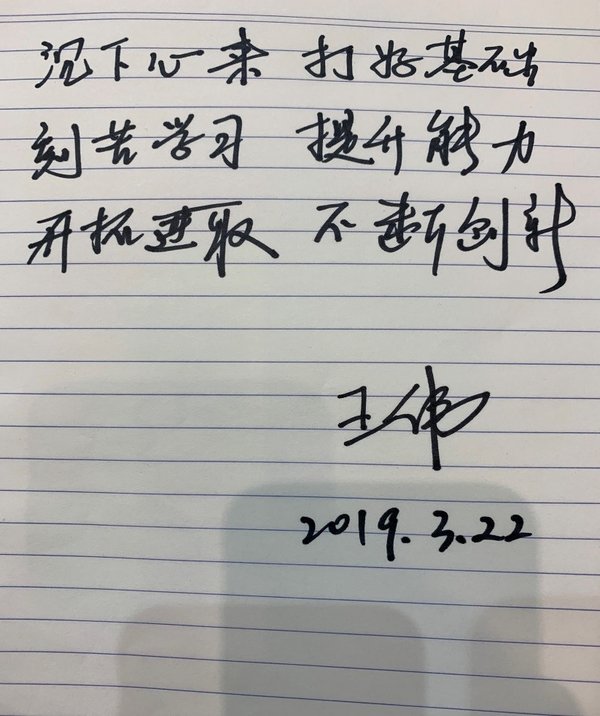 沉下心来 打好基础
刻苦学习 提升能力
开拓进取 不断创新
王伟
2019.3.22